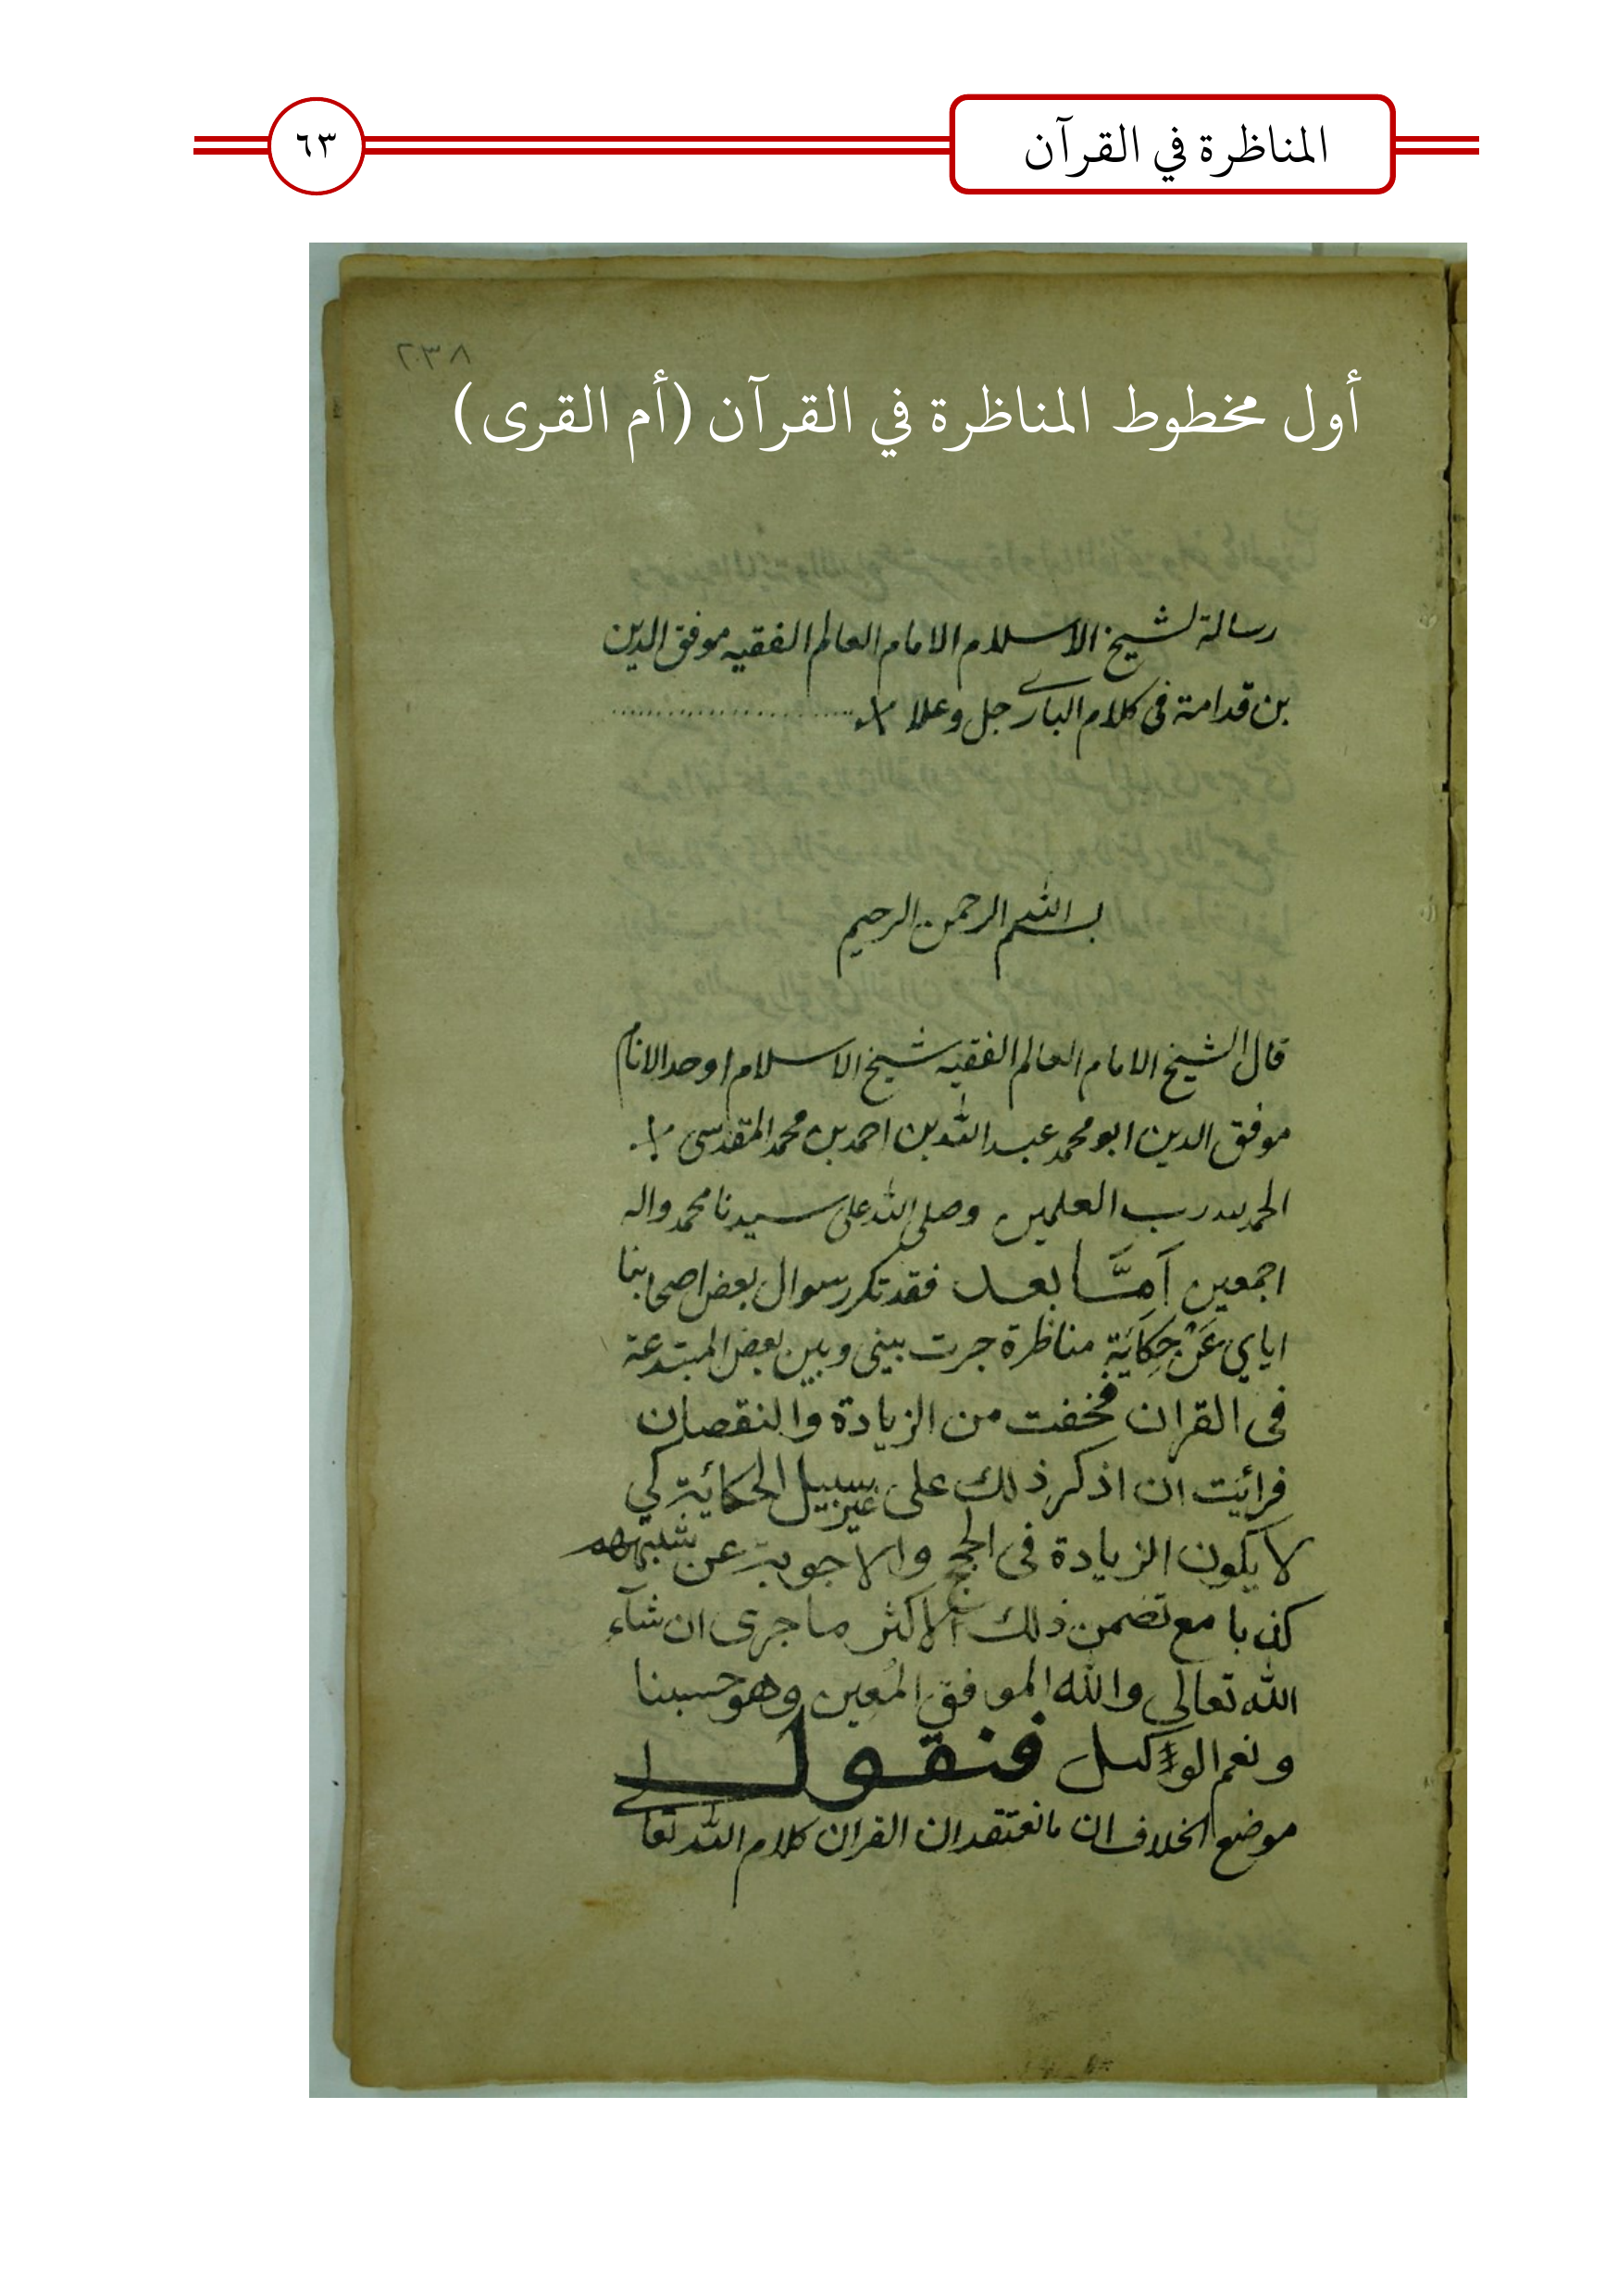 المناظرة في القرآن
٦٣
٢٠٣٨
أول مخطوط المناظرة في القرآن (أم القرى)
رسالة لشيخ الاسلام الامام العالم الفقيه موفق الدين
بن قدامة فى كلام البارے جل وعلا
بسم الله الرحمن الرحيم
قال الشيخ الامام العالم الفقيه شيخ الاسلام اوحد الانام
موفق الدين ابو محمد عبد الله بن احمد بن محمد المقدسى
الحمد لله رب العلمين وصلى الله على سيدنا محمد واله
اجمعين اَمَّا بعد فقد تكرر سوال بعض اصحابنا
اياي عَنْ حِكَايَةِ مناظرة جرت بينى وبين بعض المبتدعة
فى القران فخفت من الزيادة والنقصان
فرائيت ان اذكر ذلك على غير سبيل الحكائية كي
لا يكون الزيادة فى الحجج والاجوبة عن شبههم
كذبا مع تضمن ذلك الاكثر ما جرى ان شآء
الله تعالى والله الموفق المُعين وهو حسبنا
ونعم الوكيل فنقول
موضع الخلاف ان ما نعتقد ان القران كلام الله تعالے